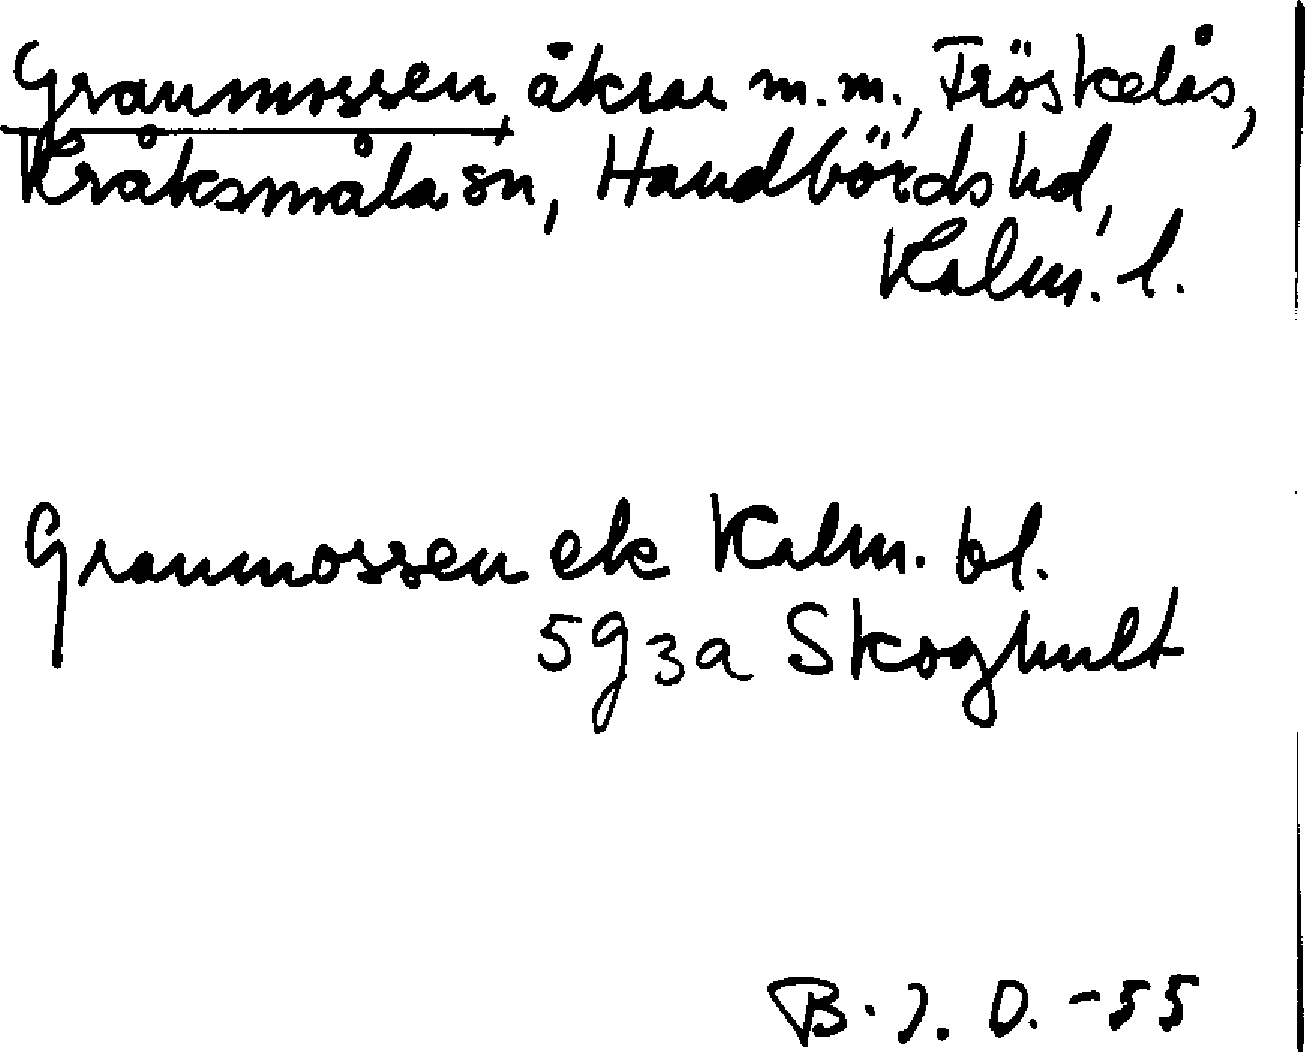 Granmossen, åkrar m.m., Tröskelås,
Kråksmåla sn, Handbörds hd,
Kalm. l.
Granmossen ek Kalm. bl.
5g3a Skoghult
B. J. O. -55